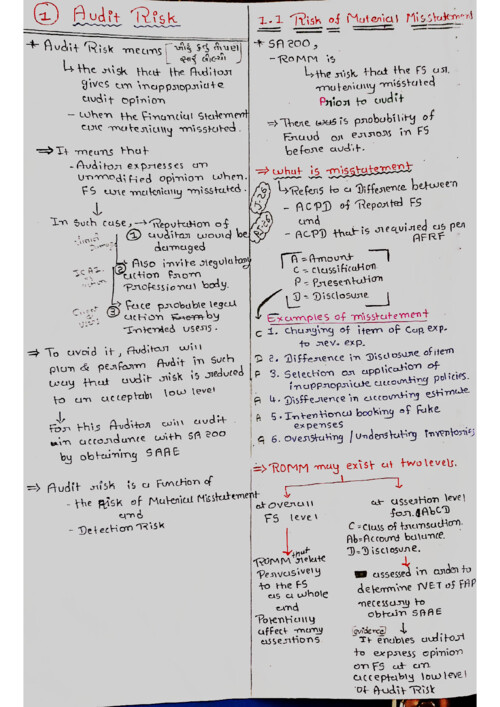 ① Audit Risk
* Audit Risk means
↳ the risk that the Auditor
gives an inappropriate
audit opinion
- when the Financial Statement
are materially misstated.
⇒ It means that
- Auditor expresses an
unmodified opinion when
FS are materially misstated.
In such case, → Reputation of
① auditor would be
damaged
② Also invite regulatory
action from
Professional body.
③ Face probable legal
action from by
Intended users.
⇒ To avoid it, Auditor will
plan & perform Audit in such
way that audit risk is reduced
to an acceptabl low level
For this Auditor will audit
in accordance with SA 200
by obtaining SAAE
⇒ Audit risk is a Function of
- the Risk of Material Misstatement
and
- Detection Risk
1.1 Risk of Material Misstatement
* SA 200,
- ROMM is
↳ the risk that the FS are
materially misstated
Prior to audit
⇒ There is probability of
Fraud or errors in FS
before audit.
⇒ what is misstatement
↳ Refers to a Difference between
- ACPD of Reported FS
and
- ACPD that is required as per
AFRF
A = Amount
C = Classification
P = Presentation
D = Disclosure
Examples of misstatement
C 1. Changing of item of Cap. exp.
to rev. exp.
D 2. Difference in Disclosure of item
P 3. Selection or application of
inappropriate accounting policies.
A 4. Difference in accounting estimate
A 5. Intentional booking of fake
expenses
A 6. Overstating / Understating Inventories
⇒ ROMM may exist at two levels.
at overall
FS level
ROMM that relate
Pervasively
to the FS
as a whole
and
Potentially
affect many
assertions
at assertion level
for AbCD
C = Class of transaction.
Ab = Account balance.
D = Disclosure.
assessed in order to
determine NET of FAP
necessary to
obtain SAAE
evidence
It enables auditor
to express opinion
on FS at an
acceptably low level
of Audit Risk